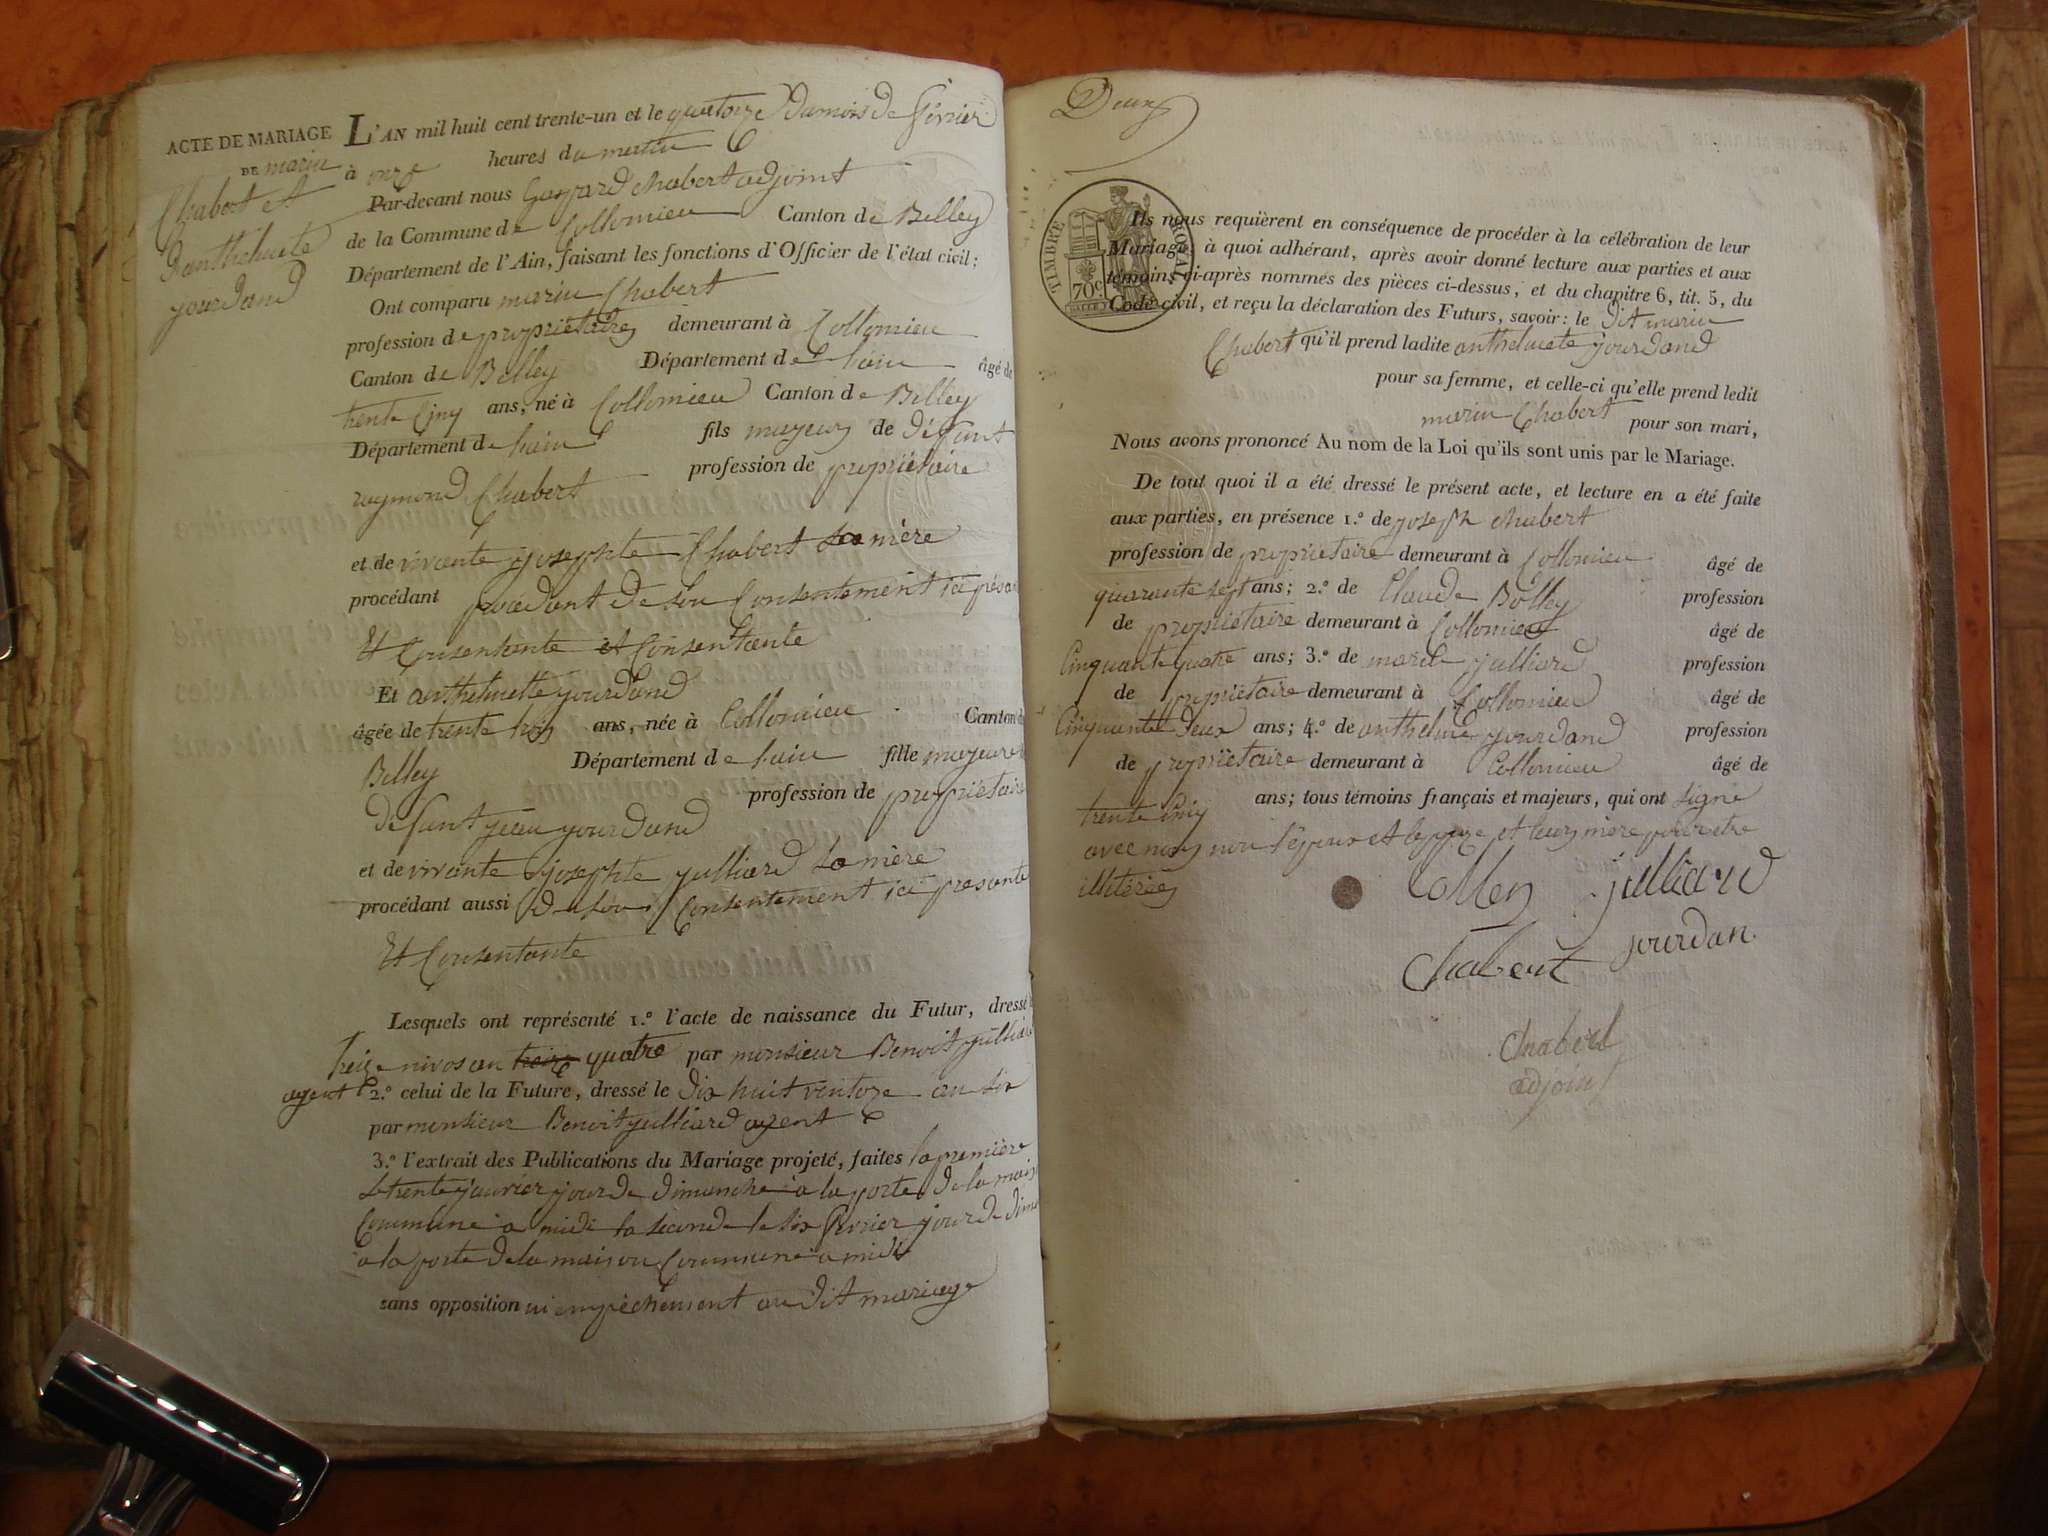 ACTE DE MARIAGE
DE marin
Chabert et
D'anthelmete
jourdand
L'AN mil huit cent trente-un et le quatorze du mois de février
à onze heures du matin
Par-devant nous Gaspard chabert adjoint
de la Commune de Collomieu Canton de Belley
Département de l'Ain, faisant les fonctions d'Officier de l'état civil;
Ont comparu marin Chabert
profession de propriétaire demeurant à Collomieu
Canton de Belley Département de lain âgé de
trente Cinq ans, né à Collomieu Canton de Belley
Département de lain fils majeur de défunt
raymond Chabert profession de propriétaire
et de vivante josephte Chabert sa mère
procédant procédant de son Consentement ici présa
Et Consentente et Consentante
Et anthelmette jourdand
âgée de trente trois ans, née à Collomieu Canton de
Belley Département de lain fille majeure
défunt jean jourdand profession de propriétaire
et de vivante josephte julliard sa mère
procédant aussi de son Consentement ici presante
Et Consentante
Lesquels ont représenté 1.° l'acte de naissance du Futur, dressé
treize nivos an treize quatre par monsieur Benoit julliard
agent 2.° celui de la Future, dressé le dix huit ventoze an six
par monsieur Benoit julliard agent
3.° l'extrait des Publications du Mariage projeté, faites la première
le trente janvier jour de dimanche a la porte de la maison
Commune a midi la seconde le six février jour de dim
a la porte de la maison Commune a midi
sans opposition ni empêchement au dit mariage
Deux
TIMBRE ROYAL
70c
Ils nous requièrent en conséquence de procéder à la célébration de leur
Mariage, à quoi adhérant, après avoir donné lecture aux parties et aux
témoins ci-après nommés des pièces ci-dessus, et du chapitre 6, tit. 5, du
Code civil, et reçu la déclaration des Futurs, savoir: le dit marin
Chabert qu'il prend ladite anthelmete jourdand
pour sa femme, et celle-ci qu'elle prend ledit
marin Chabert pour son mari,
Nous avons prononcé Au nom de la Loi qu'ils sont unis par le Mariage.
De tout quoi il a été dressé le présent acte, et lecture en a été faite
aux parties, en présence 1.° de joseph chabert
profession de propriétaire demeurant à Collomieu âgé de
quarante sept ans; 2.° de Claude Bolley profession
de propriétaire demeurant à Collomieu âgé de
Cinquante quatre ans; 3.° de julliard profession
de propriétaire demeurant à Collomieu âgé de
Cinquante deux ans; 4.° de anthelme jourdand profession
de propriétaire demeurant à Collomieu âgé de
trente Cinq ans; tous témoins français et majeurs, qui ont signé
avec nous non l'époux et lepouze et leurs mère pour etre
illitérées
julliard
Chabert jourdan
Chabert
adjoint